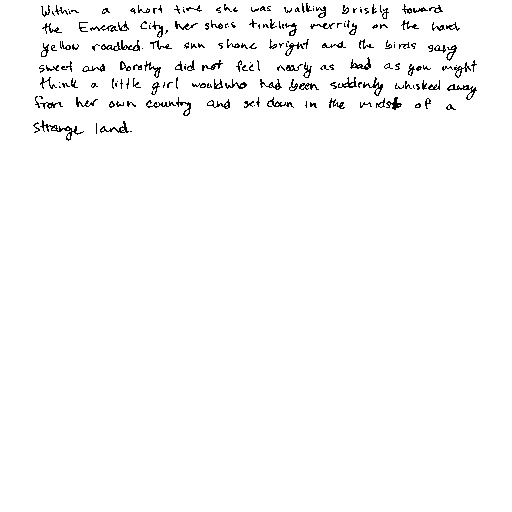 Within a short time she was walking briskly toward
the Emerald City, her shoes tinkling merrily on the hard
yellow roadbed. The sun shone bright and the birds sang
sweet and Dorothy did not feel nearly as bad as you might
think a little girl wouldwho had been suddenly whisked away
from her own country and set down in the midst of a
strange land.